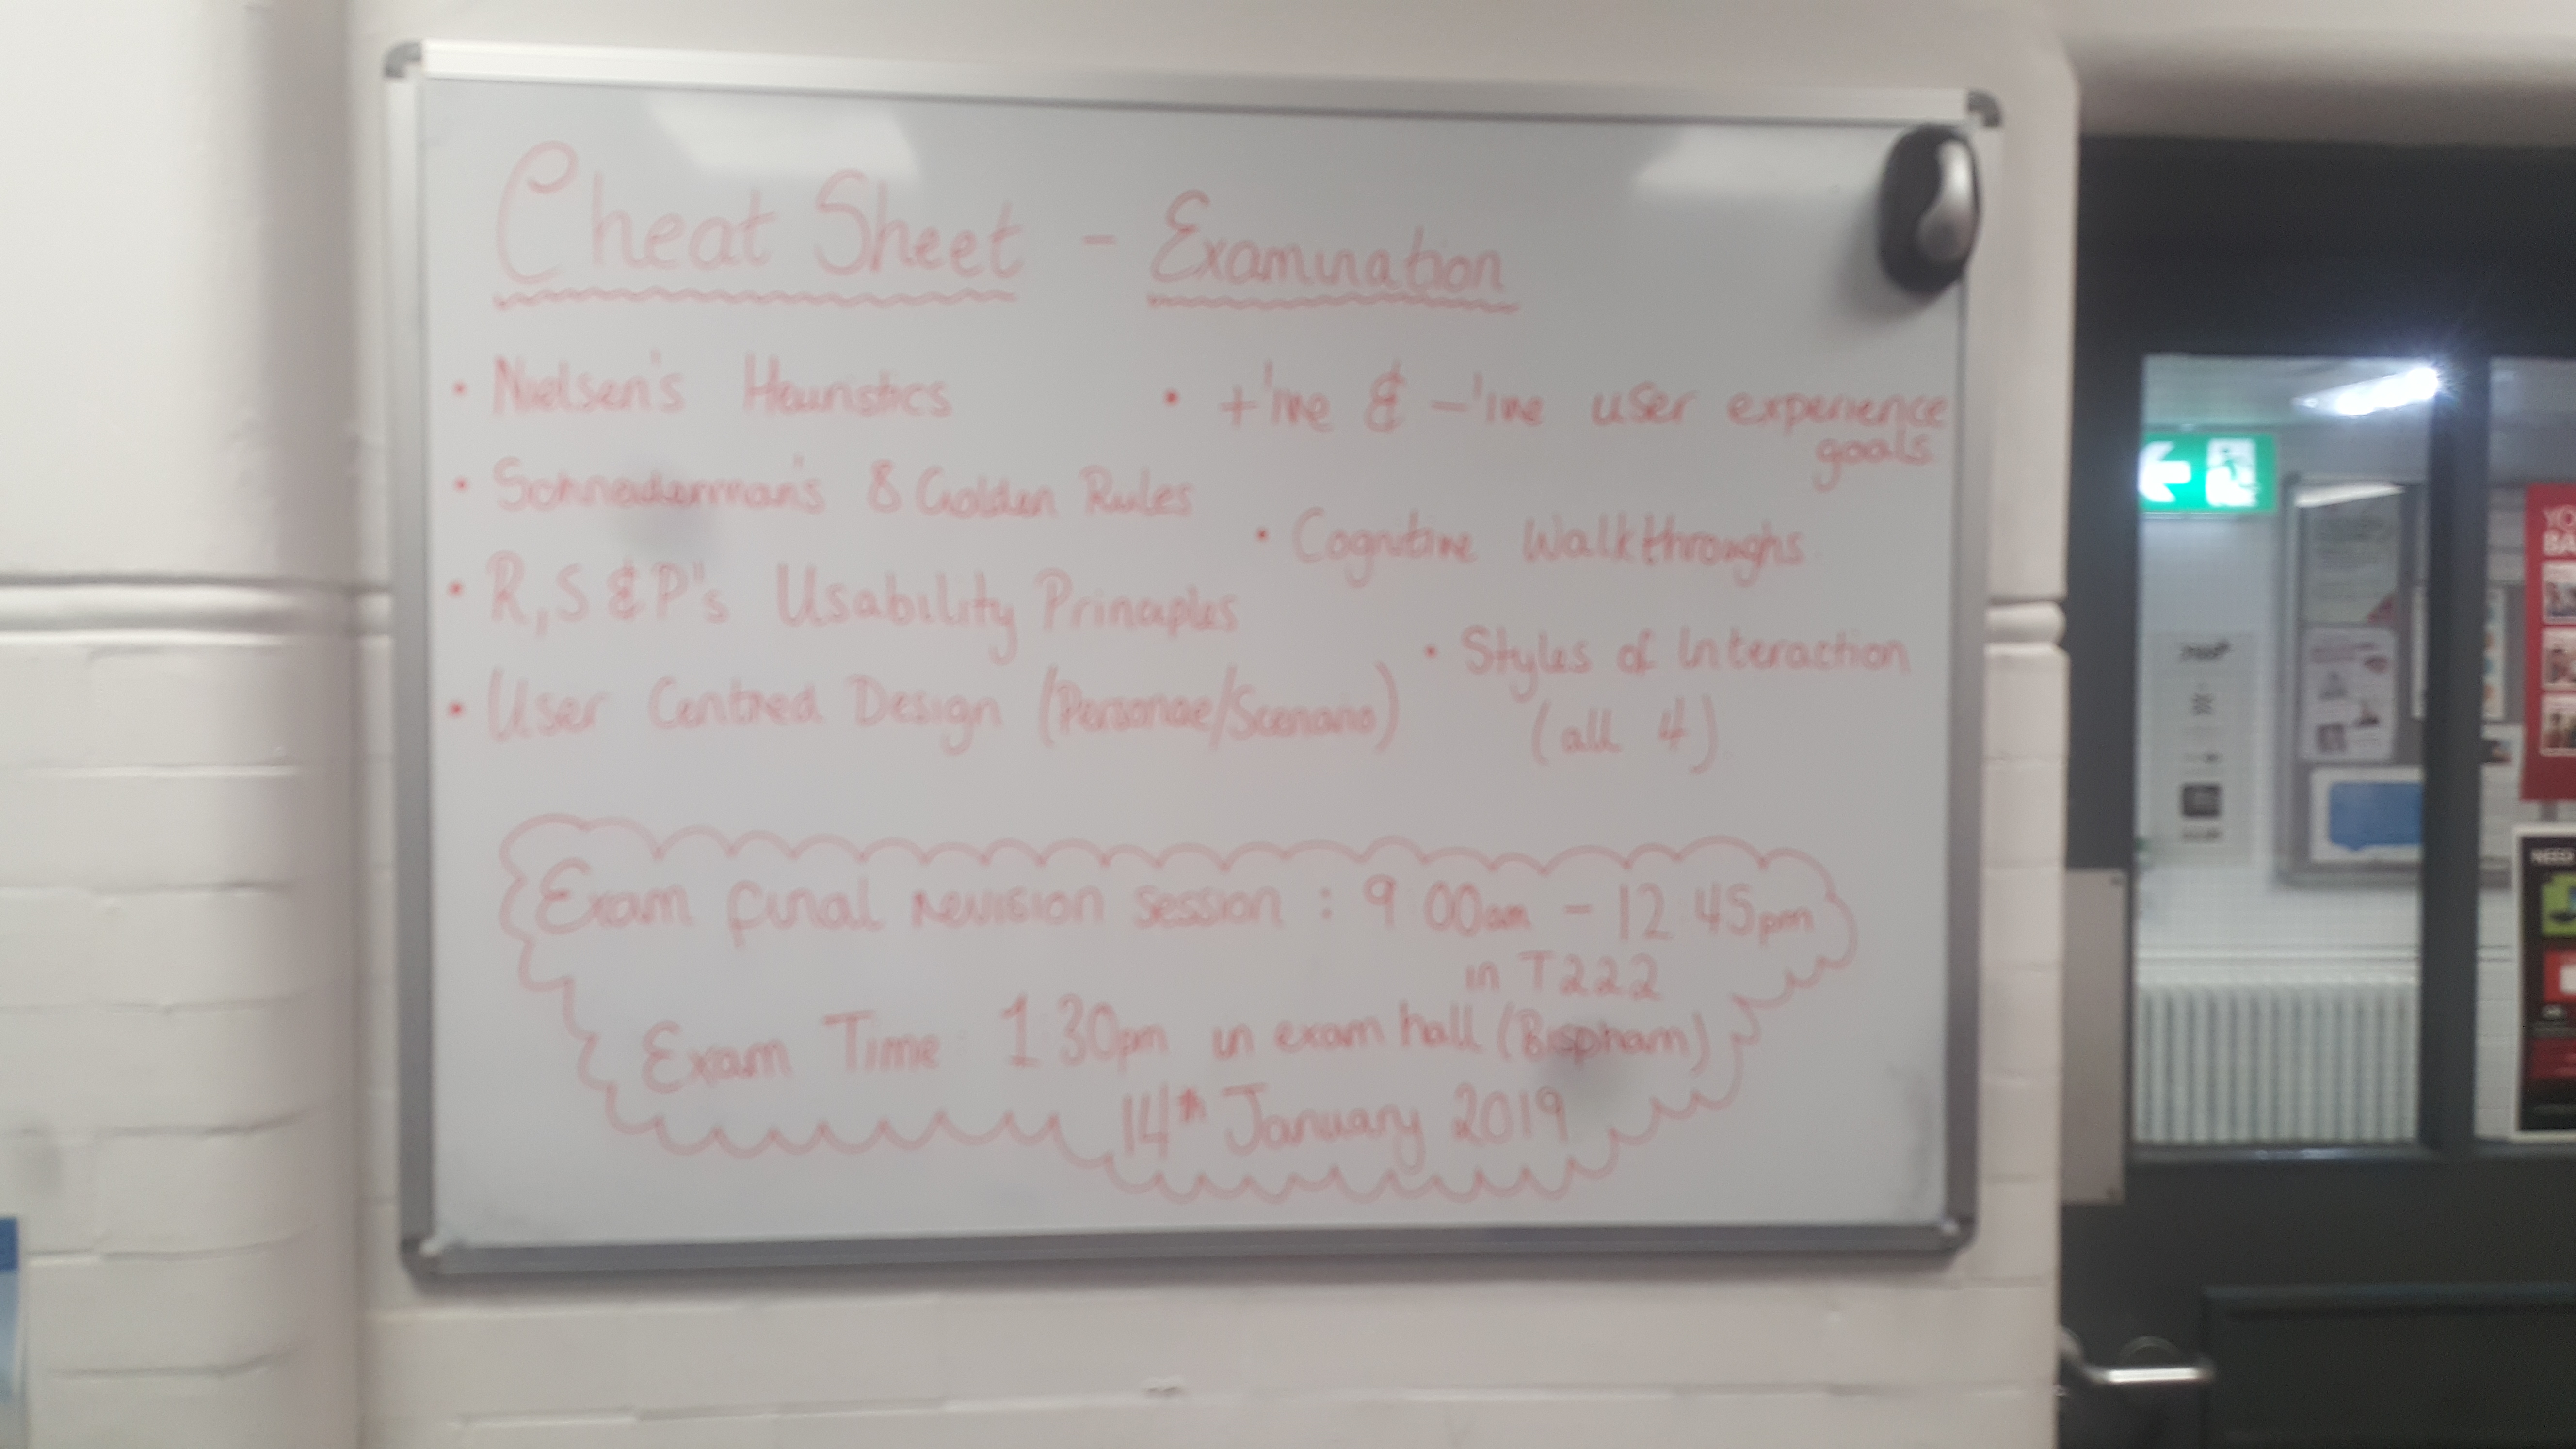 Cheat Sheet - Examination
• Nielsen's Heuristics
• Schneiderman's 8 Golden Rules
• R, S & P's Usability Principles
• User Centred Design (Personae/Scenario)
• +'ive & -'ive user experience
goals
• Cognitive Walkthroughs
• Styles of Interaction
(all 4)
Exam final revision session : 9 00am - 12 45pm
in T222
Exam Time 1 30pm in exam hall (Bispham)
14th January 2019
YO
BA
NEED